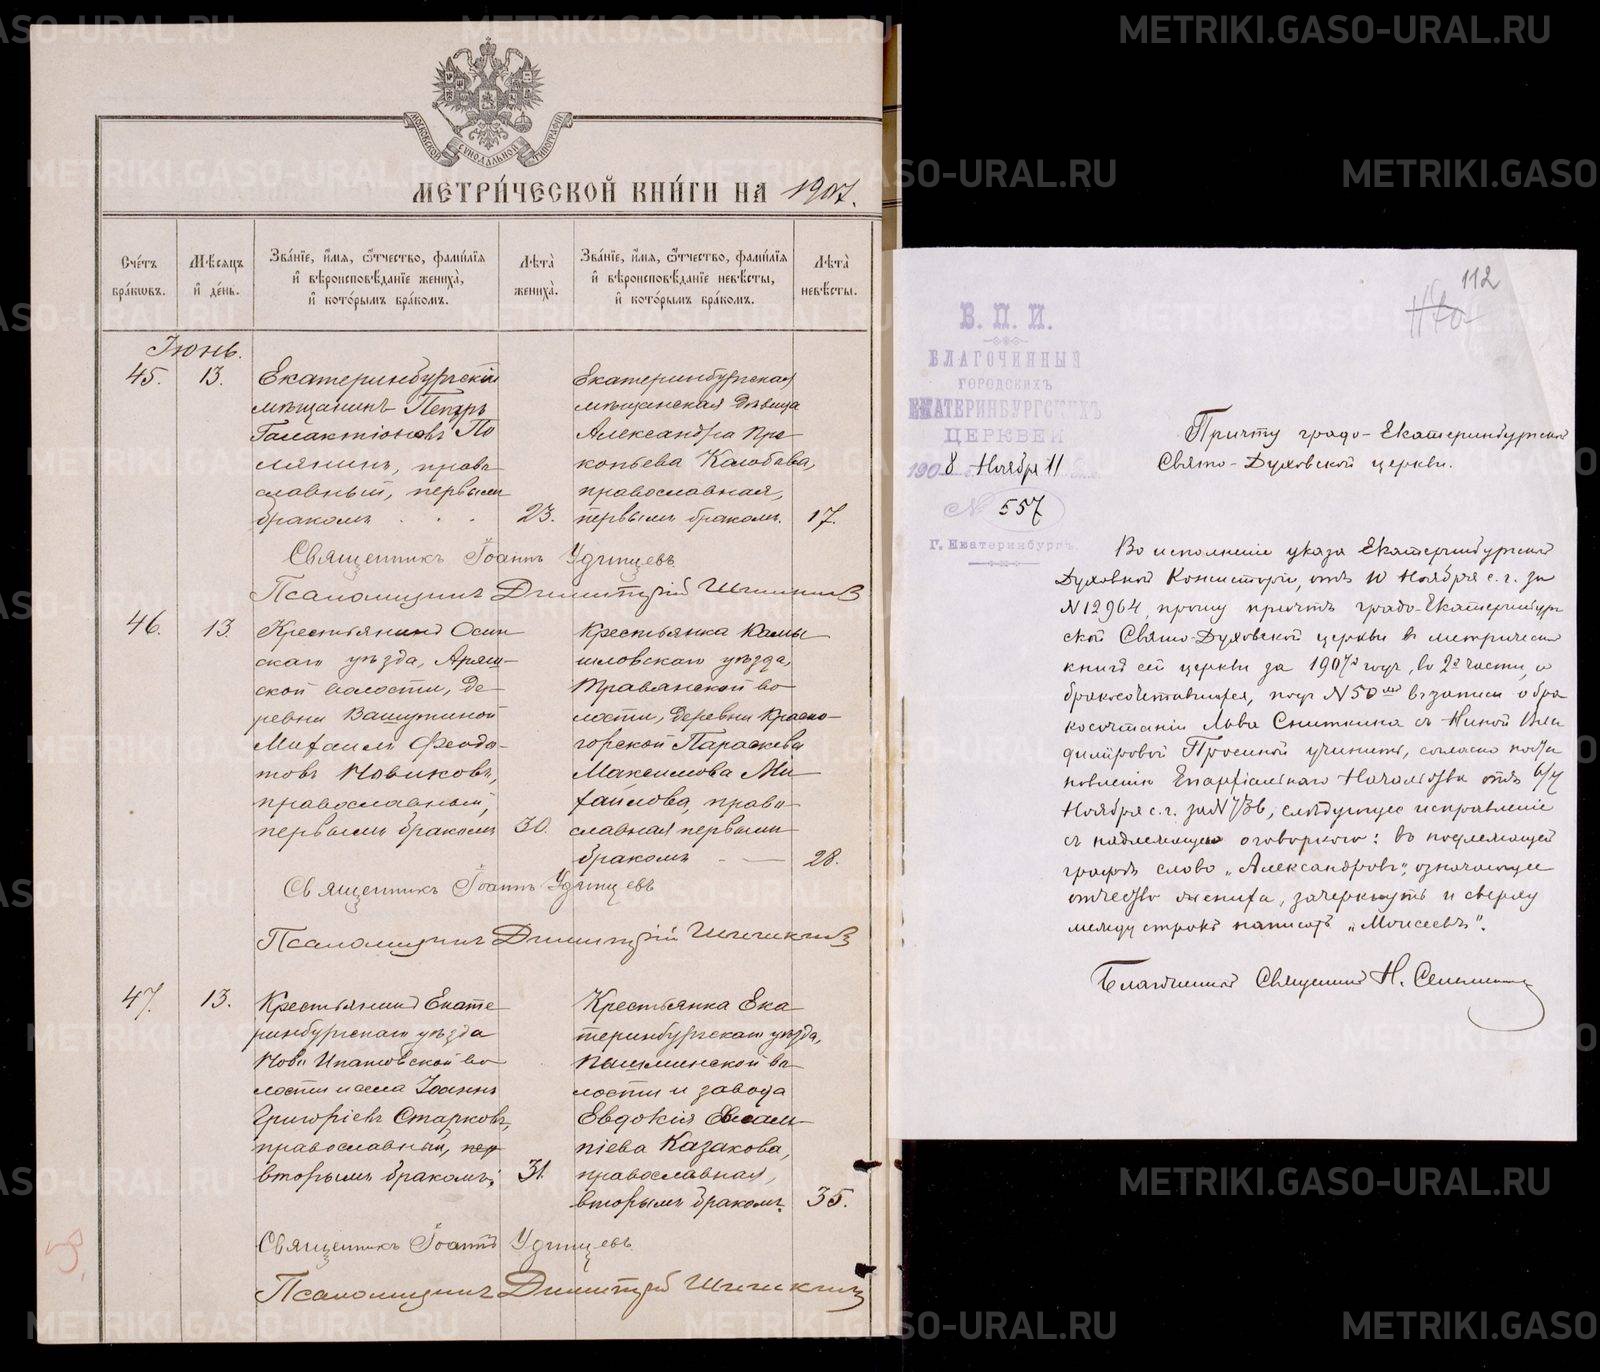 МОСКОВСКОЙ СѴНОДАЛЬНОЙ ТИПОГРАФІИ
МЕТРИ́ЧЕСКОЙ КНИ́ГИ НА 1907.
Сче́тъ бра́ковъ.
Мѣсяцъ и҆ де́нь.
Зва́нїе, и҆́мя, ѻ҆́тчество, фами́лїя и҆ вѣроисповѣ́данїе жениха̀, и҆ кото́рымъ бра́комъ.
Лѣта̀ жениха̀.
Зва́нїе, и҆́мя, ѻ҆́тчество, фами́лїя и҆ вѣроисповѣ́данїе невѣ́сты, и҆ кото́рымъ бра́комъ.
Лѣта̀ невѣ́сты.
Іюнь.
45. 13.
Екатеринбургскій
мѣщанинъ Петръ
Галактіоновъ По
лянинъ, право
славный, первымъ
бракомъ . . . 23.
Екатеринбургская
мѣщанская дѣвица
Александра Про
копьева Колобова,
православная,
первымъ бракомъ. 17.
Священникъ Іоаннъ Удинцевъ
Псаломщикъ Димитрій
46. 13.
Крестьянинъ Осин
скаго уѣзда, Аряш-
ской волости, де-
ревни Вашутиной
Михаилъ Феодо-
товъ Новиковъ,
православный,
первымъ бракомъ 30.
Крестьянка Камы
шловскаго уѣзда,
Травянской во
лости, деревни Красно-
горской Параскева
Максимова Ми-
хайлова, право-
славная первымъ
бракомъ - — 28.
Священникъ Іоаннъ Удинцевъ
Псаломщикъ Димитрій
47. 13.
Крестьянинъ Екате
ринбургскаго уѣзда
Ново Ипатовской во
лости и села Іоаннъ
Григоріевъ Старковъ,
православный, пер
вторымъ бракомъ; 31.
Крестьянка Ека
теринбургскаго уѣзда,
Пышминской во-
лости и завода
Евдокія Евлам-
піева Казакова,
православная,
вторымъ бракомъ. 35.
Священникъ Іоаннъ Удинцевъ
Псаломщикъ Димитрій
112
В. П. И.
БЛАГОЧИННЫЙ
ГОРОДСКИХЪ
ЕКАТЕРИНБУРГСКИХЪ
ЦЕРКВЕЙ
1908 Ноября 11
№ 557
Г. Екатеринбургъ.
Причту градо-Екатеринбургской
Свято-Духовской церкви.
Во исполненіе указа Екатеринбургской
Духовной Консисторіи, отъ 10 Ноября с. г. за
№ 12964, прошу причтъ градо-Екатеринбург
ской Свято-Духовской церкви въ метрической
книгѣ сей церкви за 1907й годъ, во 2й части, о
бракосочетавшихся, подъ № 50мъ въ записи о бра
косочетаніи Льва Сниткина съ Ниной Вла
диміровой Просиной учинить, согласно поста
новленію Епархіальнаго Начальства отъ 6/7
Ноября с. г. за № 1736, слѣдующее исправленіе
съ надлежащею оговоркою: въ подлежащей
графѣ слово „Александровъ", означающее
отчество жениха, зачеркнуть и сверху
между строкъ написать „Моисеевъ".
Благочинный Священникъ Н.
METRIKI.GASO-URAL.RU